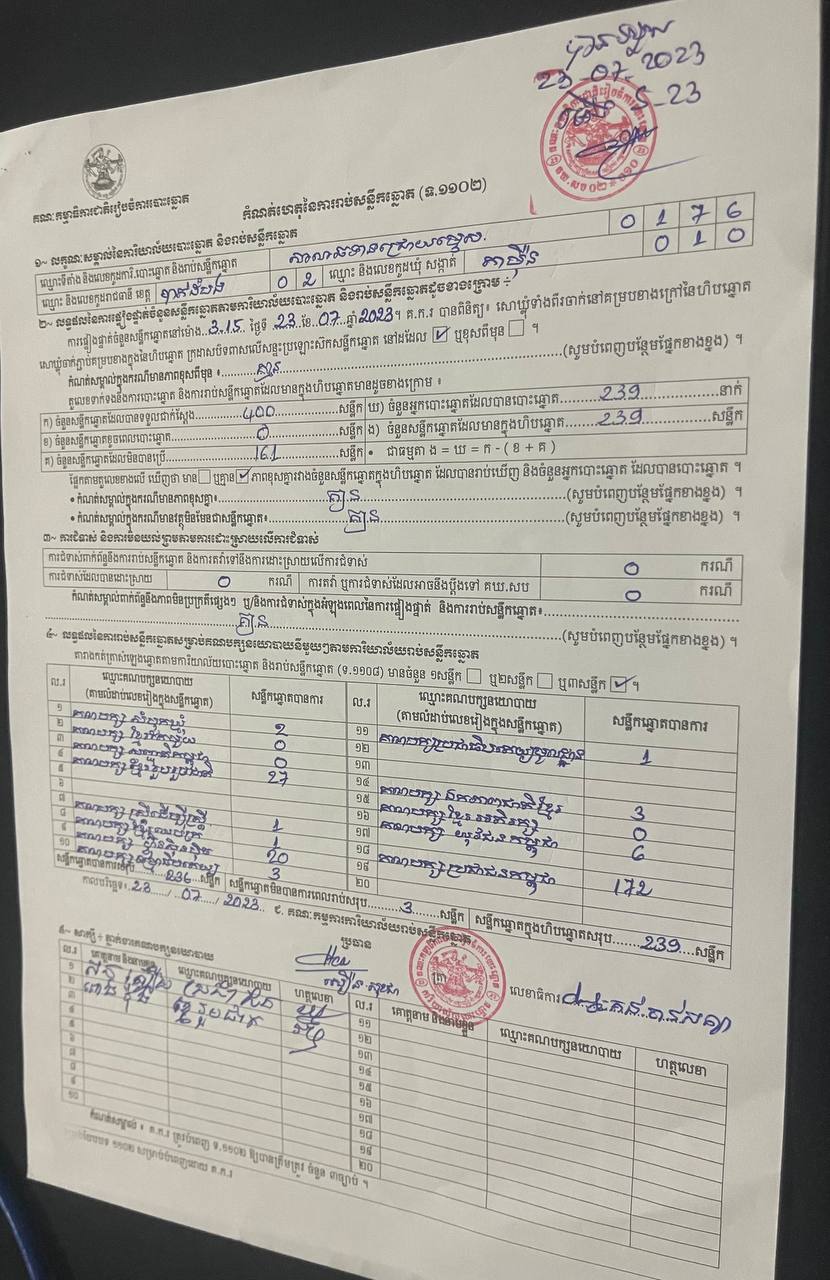 23-07-2023
គណៈកម្មាធិការជាតិរៀបចំការបោះឆ្នោត
កំណត់ហេតុនៃការរាប់សន្លឹកឆ្នោត (ទ.១១០២)
១~ លក្ខណៈសម្គាល់នៃការិយាល័យបោះឆ្នោត និងរាប់សន្លឹកឆ្នោត
ឈ្មោះទីតាំង និងលេខកូដការិ.បោះឆ្នោត និងរាប់សន្លឹកឆ្នោត 0 1 7 6
ឈ្មោះ និងលេខកូដរាជធានី ខេត្ត បាត់ដំបង 0 2 ឈ្មោះ និងលេខកូដឃុំ សង្កាត់ 0 1 0
២~ លទ្ធផលនៃការផ្ទៀងផ្ទាត់ចំនួនសន្លឹកឆ្នោតតាមការិយាល័យបោះឆ្នោត និងរាប់សន្លឹកឆ្នោតដូចខាងក្រោម ៖
ការផ្ទៀងផ្ទាត់ចំនួនសន្លឹកឆ្នោតនៅម៉ោង 3:15 ថ្ងៃទី 23 ខែ 07 ឆ្នាំ 2023។ គ.ក.រ បានពិនិត្យ៖ សោឃ្លុំទាំងពីរចាក់នៅគម្របខាងក្រៅនៃហិបឆ្នោត
សោឃ្លុំចាក់ភ្ជាប់គម្របខាងក្នុងនៃហិបឆ្នោត ក្រដាសបិទពាសលើសន្ទះប្រឡោះសៀតសន្លឹកឆ្នោត នៅដដែល ☑ ឬខុសពីមុន ☐ ។
កំណត់សម្គាល់ក្នុងករណីមានភាពខុសពីមុន ៖ គ្មាន (សូមបំពេញបន្ថែមផ្នែកខាងខ្នង) ។
តួលេខទាក់ទងនឹងការបោះឆ្នោត និងការរាប់សន្លឹកឆ្នោតដែលមានក្នុងហិបឆ្នោតមានដូចខាងក្រោម ៖
ក) ចំនួនសន្លឹកឆ្នោតដែលបានទទួលជាក់ស្តែង 400 សន្លឹក ឃ) ចំនួនអ្នកបោះឆ្នោតដែលបានបោះឆ្នោត 239 នាក់
ខ) ចំនួនសន្លឹកឆ្នោតខូចពេលបោះឆ្នោត 0 សន្លឹក ង) ចំនួនសន្លឹកឆ្នោតដែលមានក្នុងហិបឆ្នោត 239 សន្លឹក
គ) ចំនួនសន្លឹកឆ្នោតដែលមិនបានប្រើ 161 សន្លឹក • ជាធម្មតា ង = ឃ = ក - ( ខ + គ )
ផ្អែកតាមតួលេខខាងលើ ឃើញថា មាន ☐ ឬគ្មាន ☑ ភាពខុសគ្នារវាងចំនួនសន្លឹកឆ្នោតក្នុងហិបឆ្នោត ដែលបានរាប់ឃើញ និងចំនួនអ្នកបោះឆ្នោត ដែលបានបោះឆ្នោត ។
• កំណត់សម្គាល់ក្នុងករណីមានភាពខុសគ្នា៖ គ្មាន (សូមបំពេញបន្ថែមផ្នែកខាងខ្នង) ។
• កំណត់សម្គាល់ក្នុងករណីមានវត្ថុមិនមែនជាសន្លឹកឆ្នោត៖ គ្មាន (សូមបំពេញបន្ថែមផ្នែកខាងខ្នង) ។
៣~ ការជំទាស់ និងការមិនយល់ព្រមតាមការដោះស្រាយលើការជំទាស់
ការជំទាស់ពាក់ព័ន្ធនឹងការរាប់សន្លឹកឆ្នោត និងការតវ៉ាទៅនឹងការដោះស្រាយលើការជំទាស់ 0 ករណី
ការជំទាស់ដែលបានដោះស្រាយ 0 ករណី ការតវ៉ា ឬការជំទាស់ដែលអាចនឹងប្តឹងទៅ គឃ.សប 0 ករណី
កំណត់សម្គាល់ពាក់ព័ន្ធនឹងភាពមិនប្រក្រតីផ្សេងៗ ឬ/និងការជំទាស់ក្នុងអំឡុងពេលនៃការផ្ទៀងផ្ទាត់ និងការរាប់សន្លឹកឆ្នោត៖
គ្មាន (សូមបំពេញបន្ថែមផ្នែកខាងខ្នង) ។
៤~ លទ្ធផលនៃការរាប់សន្លឹកឆ្នោតសម្រាប់គណបក្សនយោបាយនីមួយៗតាមការិយាល័យរាប់សន្លឹកឆ្នោត
តារាងកត់ត្រាសំឡេងឆ្នោតតាមការិយាល័យបោះឆ្នោត និងរាប់សន្លឹកឆ្នោត (ទ.១១០៨) មានចំនួន ១សន្លឹក ☐ ឬ២សន្លឹក ☐ ឬ៣សន្លឹក ☑ ។
ល.រ ឈ្មោះគណបក្សនយោបាយ (តាមលំដាប់លេខរៀងក្នុងសន្លឹកឆ្នោត) សន្លឹកឆ្នោតបានការ ល.រ ឈ្មោះគណបក្សនយោបាយ (តាមលំដាប់លេខរៀងក្នុងសន្លឹកឆ្នោត) សន្លឹកឆ្នោតបានការ
១ គណបក្ស សំបុកឃ្មុំ 2 ១១
២ គណបក្ស 0 ១២ 1
៣ គណបក្ស 0 ១៣
៤ គណបក្ស 27 ១៤
៥ ១៥ គណបក្ស ឯកភាពជាតិខ្មែរ 3
៦ ១៦ គណបក្ស ខ្មែរ អភិរក្ស 0
៧ គណបក្ស ស្រីដើម្បីស្រី 1 ១៧ គណបក្ស យុវជន កម្ពុជា 6
៨ គណបក្ស 1 ១៨
៩ គណបក្ស 20 ១៩ គណបក្ស ប្រជាជនកម្ពុជា 172
១០ គណបក្ស 3 ២០
សន្លឹកឆ្នោតបានការសរុប 236 សន្លឹក សន្លឹកឆ្នោតមិនបានការពេលរាប់សរុប 3 សន្លឹក សន្លឹកឆ្នោតក្នុងហិបឆ្នោតសរុប 239 សន្លឹក
កាលបរិច្ឆេទ៖ 23 / 07 / 2023 ៩. គណៈកម្មការការិយាល័យរាប់សន្លឹកឆ្នោត
ប្រធាន
លេខាធិការ
៥~ សាក្សី ÷ ភ្នាក់ងារគណបក្សនយោបាយ
ល.រ គោត្តនាម និងនាមខ្លួន ឈ្មោះគណបក្សនយោបាយ ហត្ថលេខា ល.រ គោត្តនាម និងនាមខ្លួន ឈ្មោះគណបក្សនយោបាយ ហត្ថលេខា
១ ១១
២ ១២
៣ ១៣
៤ ១៤
៥ ១៥
៦ ១៦
៧ ១៧
៨ ១៨
៩ ១៩
១០ ២០
កំណត់សម្គាល់ ៖ គ.ក.រ ត្រូវបំពេញ ទ.១១០២ ឱ្យបានត្រឹមត្រូវ ចំនួន ៣ច្បាប់ ។
១១០២ សម្រាប់បំពេញដោយ គ.ក.រ